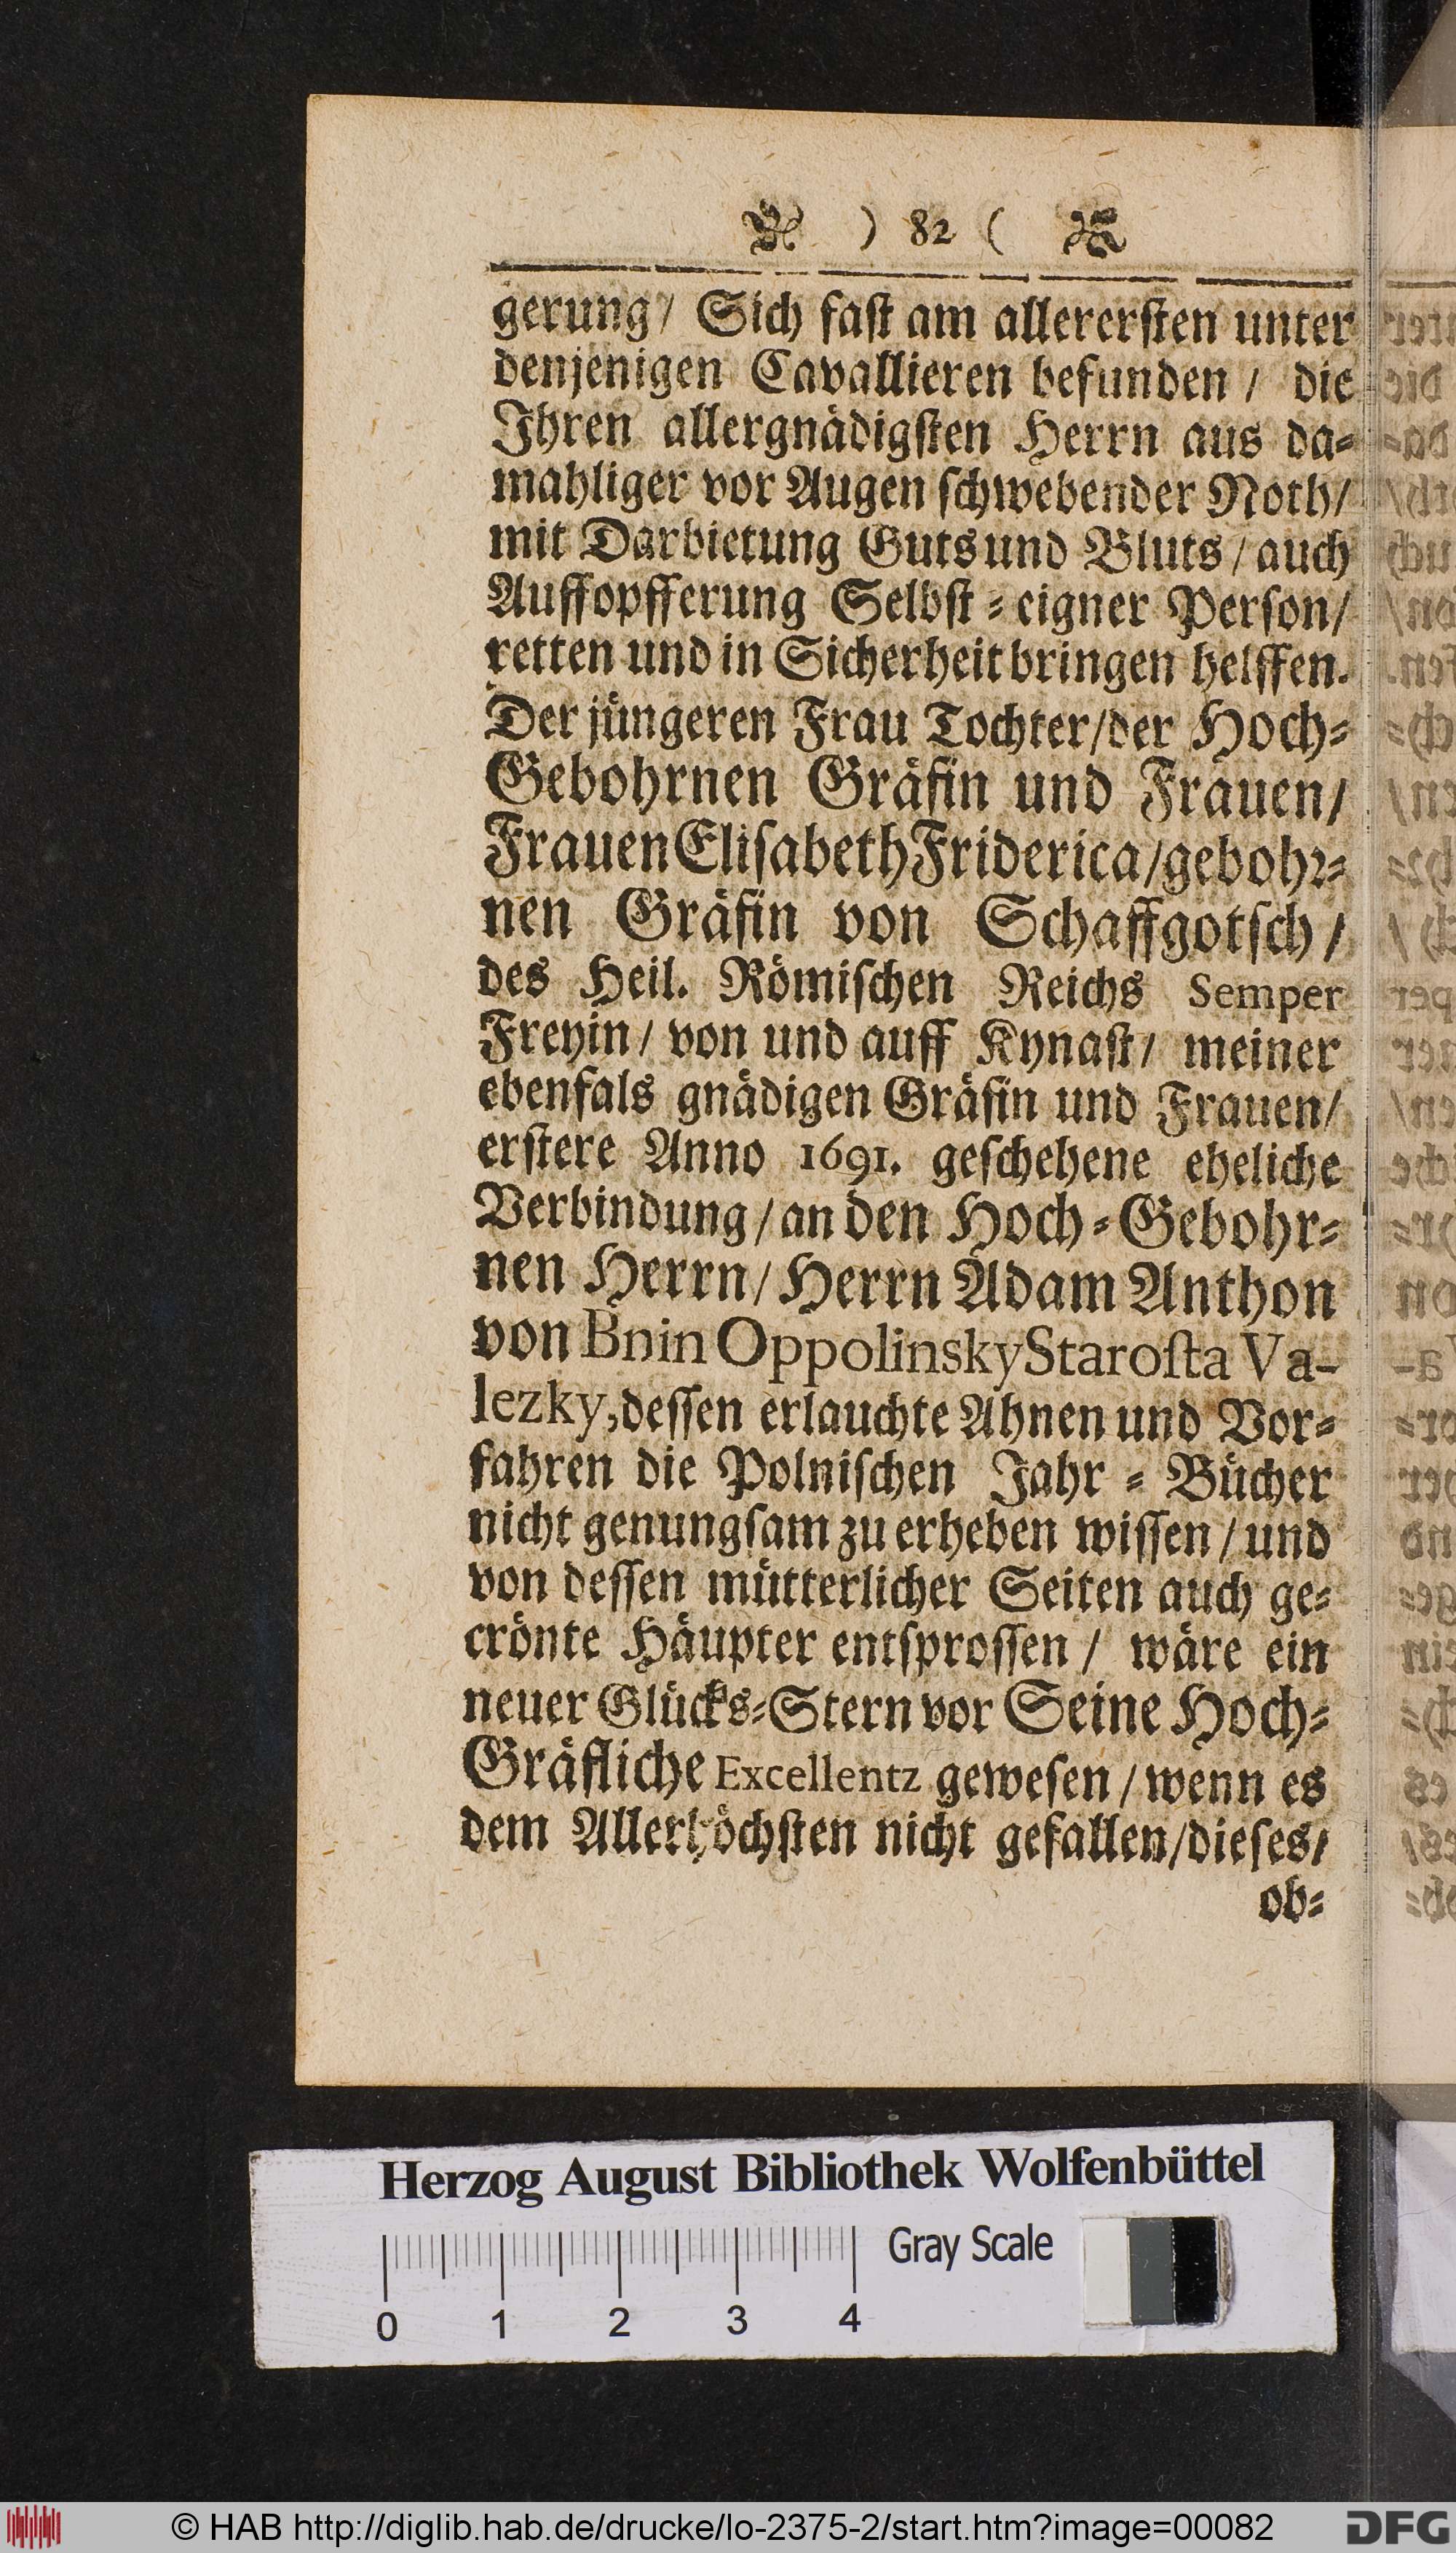 ) 82 (
gerung/ Sich faſt am allererſten unter
denjenigen Cavallieren befunden / die
Ihren allergnädigſten Herrn aus da⸗
mahliger vor Augen ſchwebender Noth/
mit Darbietung Guts und Bluts / auch
Auffopfferung Selbſt ⸗ eigner Perſon/
retten und in Sicherheit bringen helffen.
Der jüngeren Frau Tochter/der Hoch⸗
Gebohrnen Gräfin und Frauen/
Frauen Eliſabeth Friderica/gebohꝛ⸗
nen Gräfin von Schaffgotſch /
des Heil. Römiſchen Reichs Semper
Freyin / von und auff Kynaſt / meiner
ebenfals gnädigen Gräfin und Frauen/
erſtere Anno 1691. geſchehene eheliche
Verbindung / an den Hoch ⸗ Gebohr⸗
nen Herrn / Herrn Adam Anthon
von Bnin Oppolinsky Staroſta Va-
lezky, deſſen erlauchte Ahnen und Vor⸗
fahren die Polniſchen Jahr ⸗ Bücher
nicht genungſam zu erheben wiſſen / und
von deſſen mütterlicher Seiten auch ge⸗
crönte Häupter entſproſſen / wäre ein
neuer Glücks⸗Stern vor Seine Hoch⸗
Gräfliche Excellentz geweſen / wenn es
dem Allerhöchſten nicht gefallen/dieſes/
ob⸗
Herzog August Bibliothek Wolfenbüttel
Gray Scale
0 1 2 3 4
© HAB http://diglib.hab.de/drucke/lo-2375-2/start.htm?image=00082
DFG